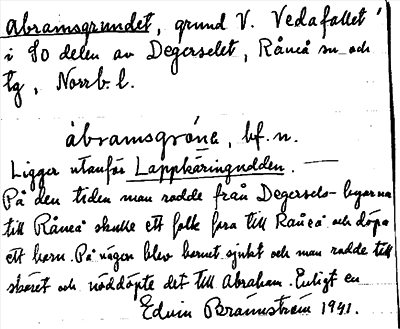 Abramsgrundet, grund V. Vedafallet
i SO delen av Degerselet, Råneå sn och
tg, Norrb. l.
åbramsgrόna, bf. n.
Ligger utanför Lappkäringudden.
På den tiden man rodde från Degersels-byarna
till Råneå skulle ett folk fara till Råneå och döpa
ett barn. På vägen blev barnet sjukt och man rodde till
skäret och nöddöpte det till Abraham. Enligt en
Edvin Brännström 1941.